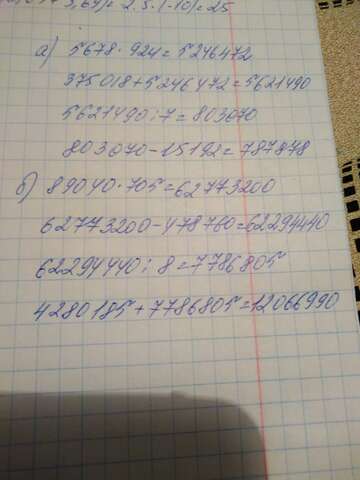 = 2,5·(-10)=25
а) 5678·924=5246472
375018+5246472=5621490
5621490:7=803070
803070-15192=787878
б) 89040·705=62773200
62773200-478760=62294440
62294440:8=7786805
4280185+7786805=12066990